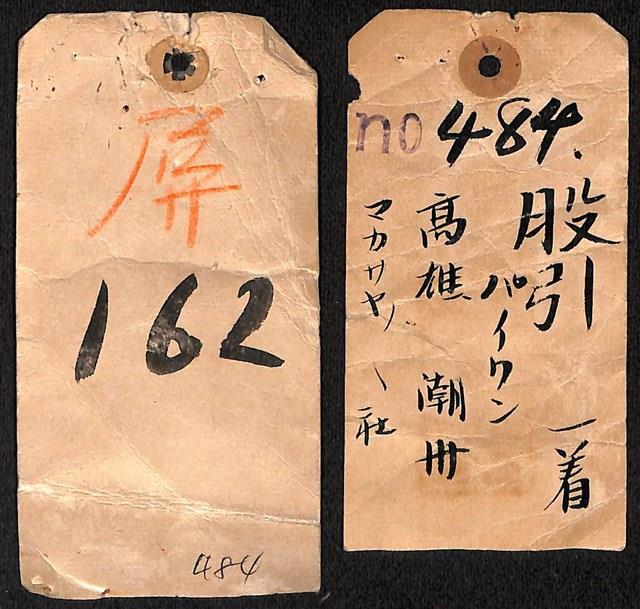 屏
162
484
no 484.
股引 一着
パイワン
高雄 潮州
マカサヤヽ社